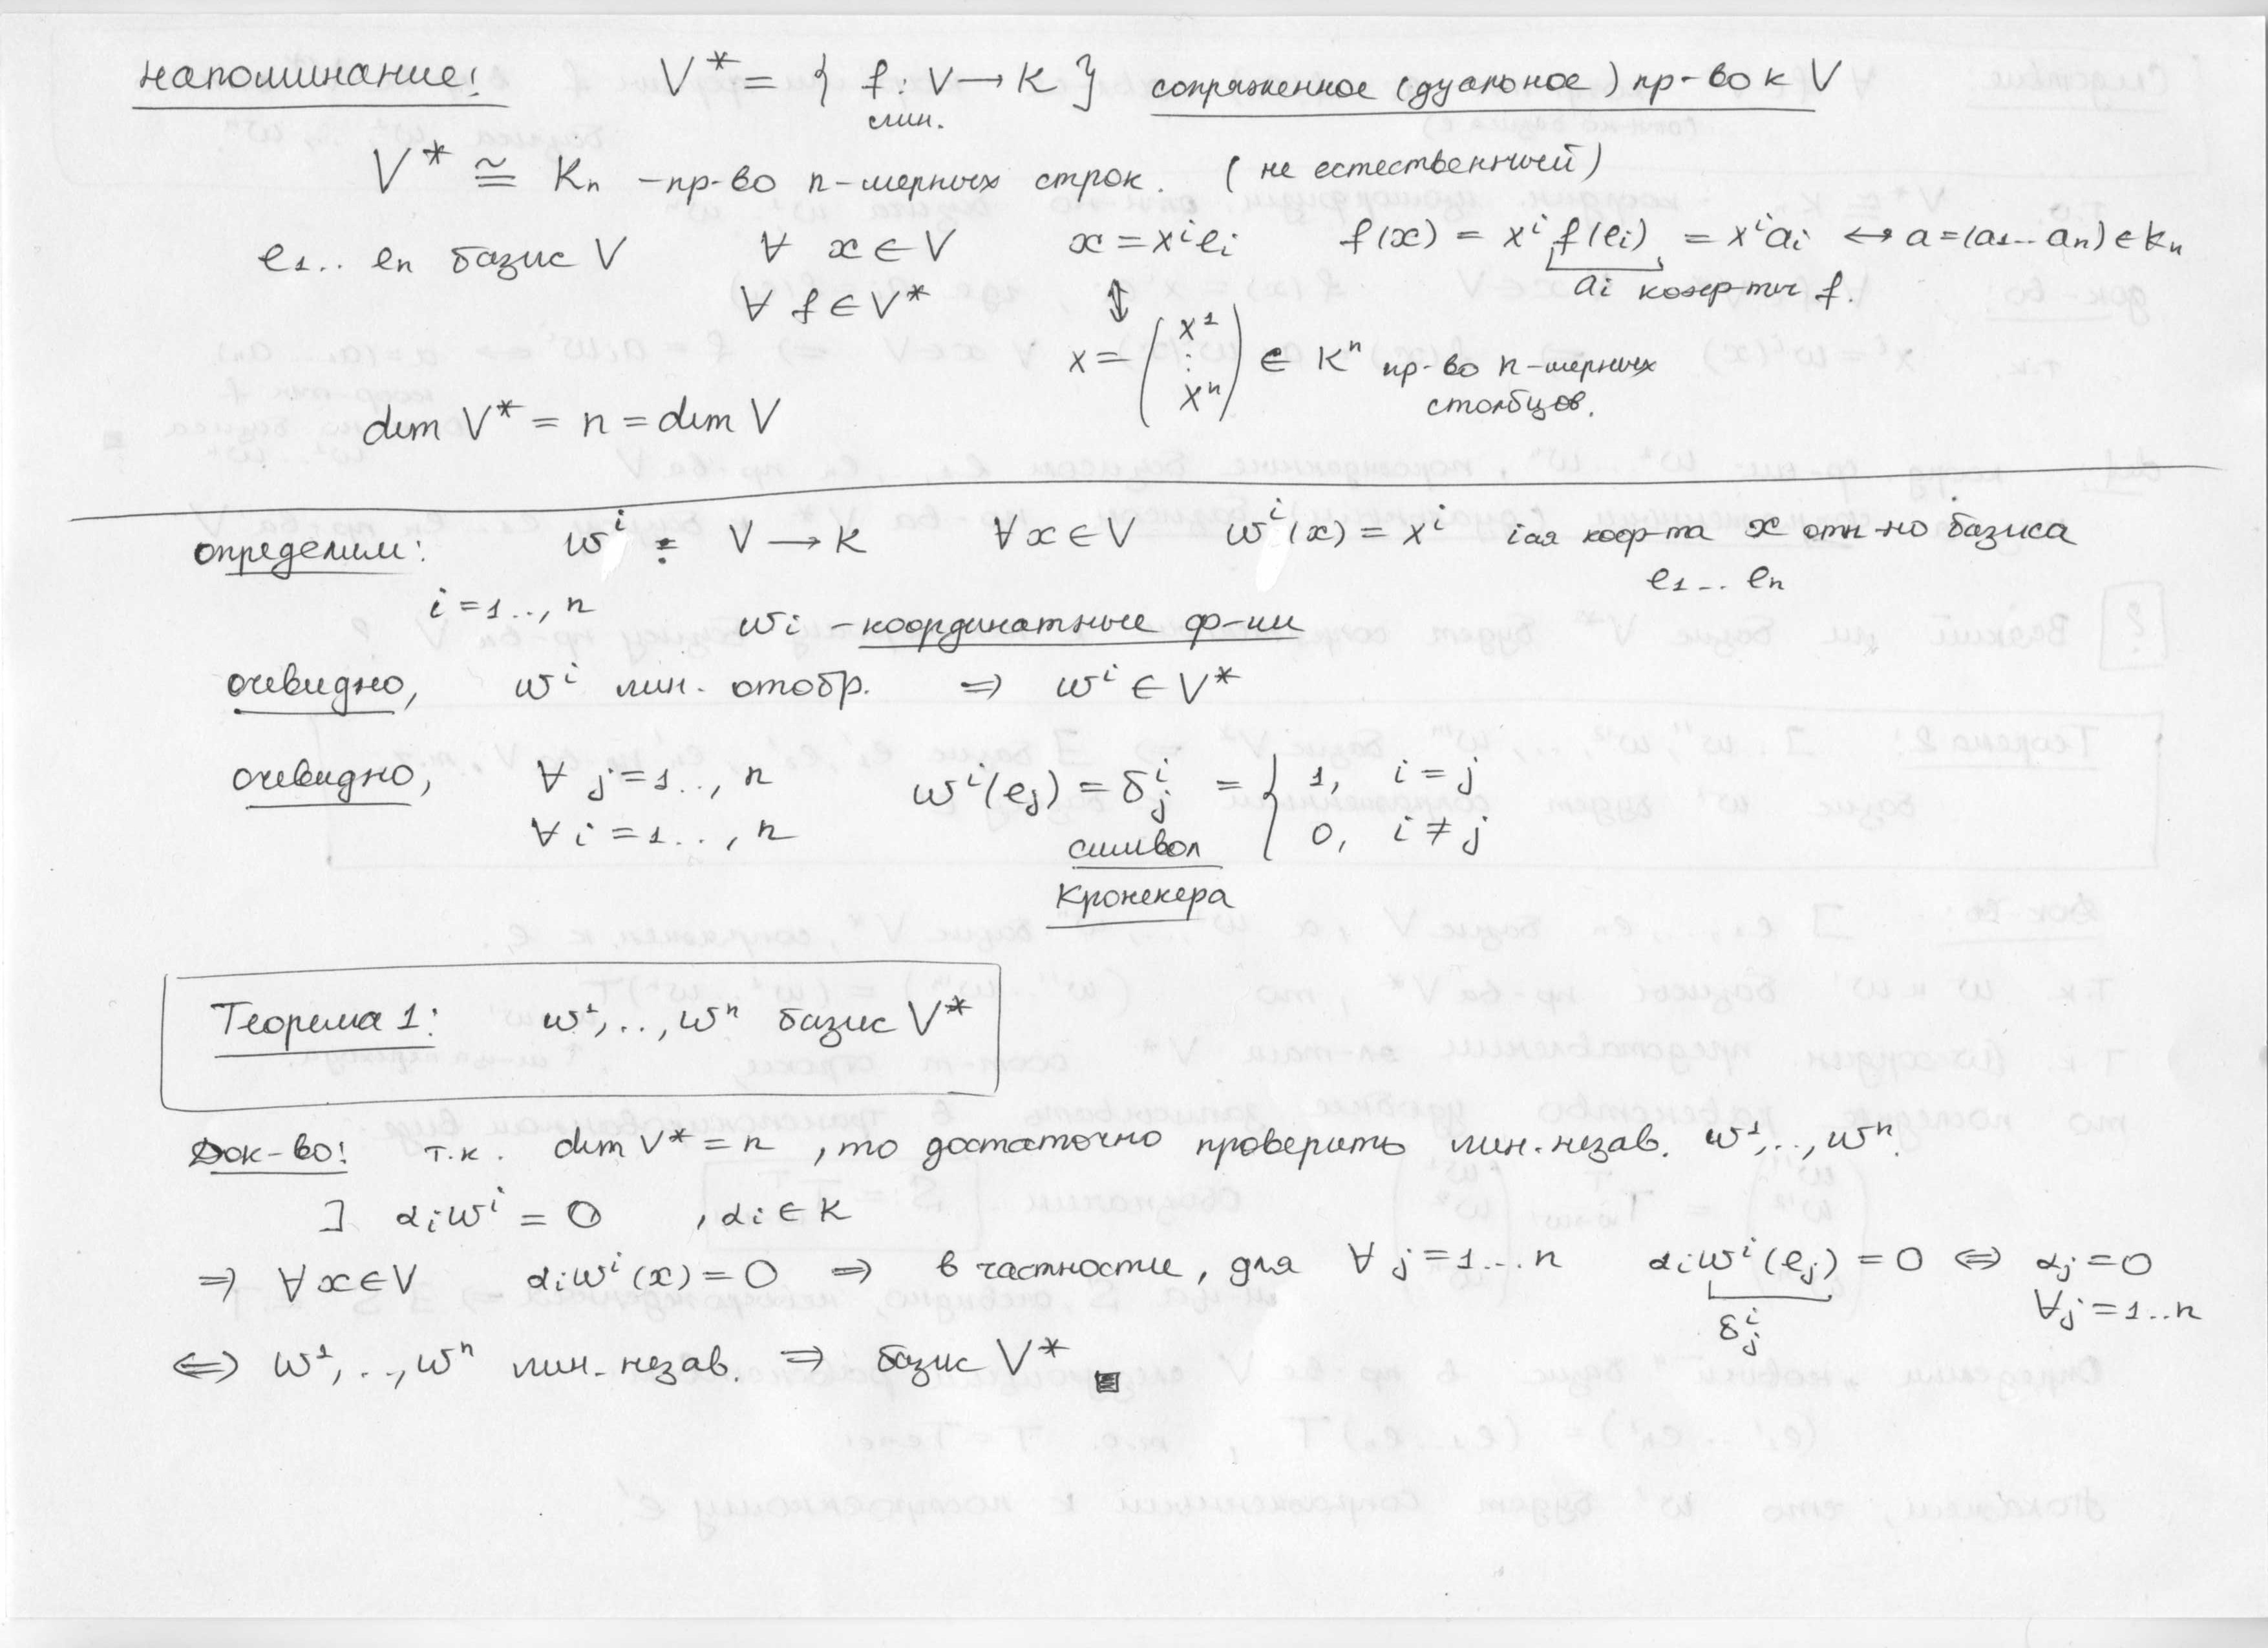 напоминание! V* = { f : V → K } сопряженное (дуальное) пр-во к V
лин.
V* ≅ Kₙ – пр-во n-мерных строк. (не естественный)
e₁.. eₙ базис V ∀ x ∈ V x = xⁱeᵢ f(x) = xⁱ f(eᵢ) = xⁱaᵢ ↔ a = (a₁... aₙ) ∈ Kₙ
∀ f ∈ V* ↕ aᵢ коэф-ты f.
x = (x¹ ⋮ xⁿ) ∈ Kⁿ пр-во n-мерных
столбцов.
dim V* = n = dim V
определим: ωⁱ : V → K ∀x ∈ V ωⁱ(x) = xⁱ iая коор-та x отн-но базиса
e₁... eₙ
i = 1.., n
ωi – координатные ф-ии
очевидно, ωⁱ лин. отобр. ⇒ ωⁱ ∈ V*
очевидно, ∀ j = 1.., n ωⁱ(eⱼ) = δⁱⱼ = { 1, i = j
∀ i = 1.., n 0, i ≠ j
символ
Кронекера
Теорема 1: ω¹,.., ωⁿ базис V*
Док-во! т.к. dim V* = n , то достаточно проверить лин.незав. ω¹,.., ωⁿ.
∃ αᵢωⁱ = 0 , αᵢ ∈ K
⇒ ∀x∈V αᵢωⁱ(x) = 0 ⇒ в частности, для ∀ j = 1...n αᵢωⁱ(eⱼ) = 0 ⇔ αⱼ = 0
δⁱⱼ ∀j = 1..n
⇔ ω¹,.., ωⁿ лин. незав. ⇒ базис V* ■